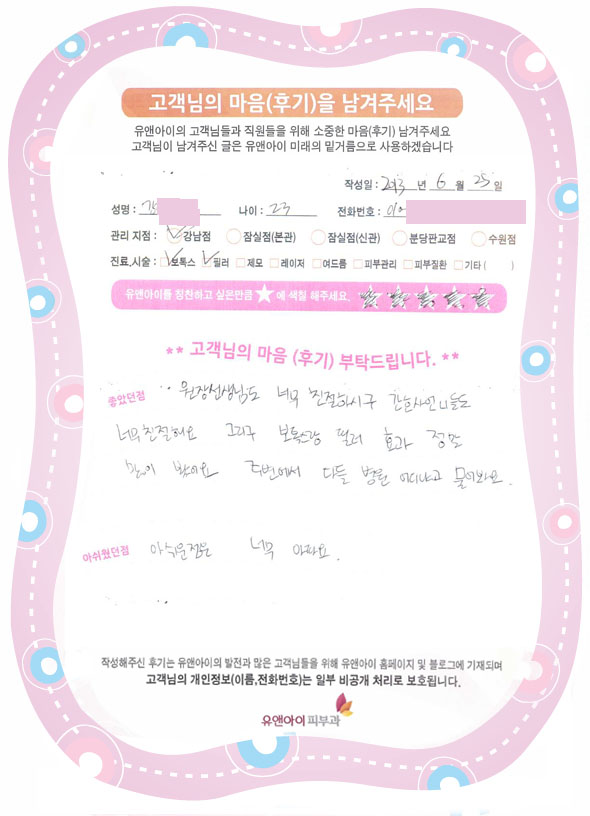 고객님의 마음(후기)을 남겨주세요
유앤아이의 고객님들과 직원들을 위해 소중한 마음(후기) 남겨주세요
고객님이 남겨주신 글은 유앤아이 미래의 밑거름으로 사용하겠습니다
작성일 : 2013 년 6 월 25 일
성명 : 나이 : 23 전화번호 : 010
관리 지점 : 강남점 잠실점(본관) 잠실점(신관) 분당판교점 수원점
진료.시술 : 보톡스 필러 제모 레이저 여드름 피부관리 피부질환 기타 ( )
유앤아이를 칭찬하고 싶은만큼 ★에 색칠 해주세요. ★★★★★
** 고객님의 마음 (후기) 부탁드립니다. **
좋았던점 원장선생님도 너무 친절하시구 간호사언니들도
너무친절해요 그리구 보톡스랑 필러 효과 정말
많이 봤어요 주변에서 다들 병원 어디냐고 물어봐요.
아쉬웠던점 아쉬운점은 너무 아파요.
작성해주신 후기는 유앤아이의 발전과 많은 고객님들을 위해 유앤아이 홈페이지 및 블로그에 기재되며
고객님의 개인정보(이름,전화번호)는 일부 비공개 처리로 보호됩니다.
유앤아이피부과